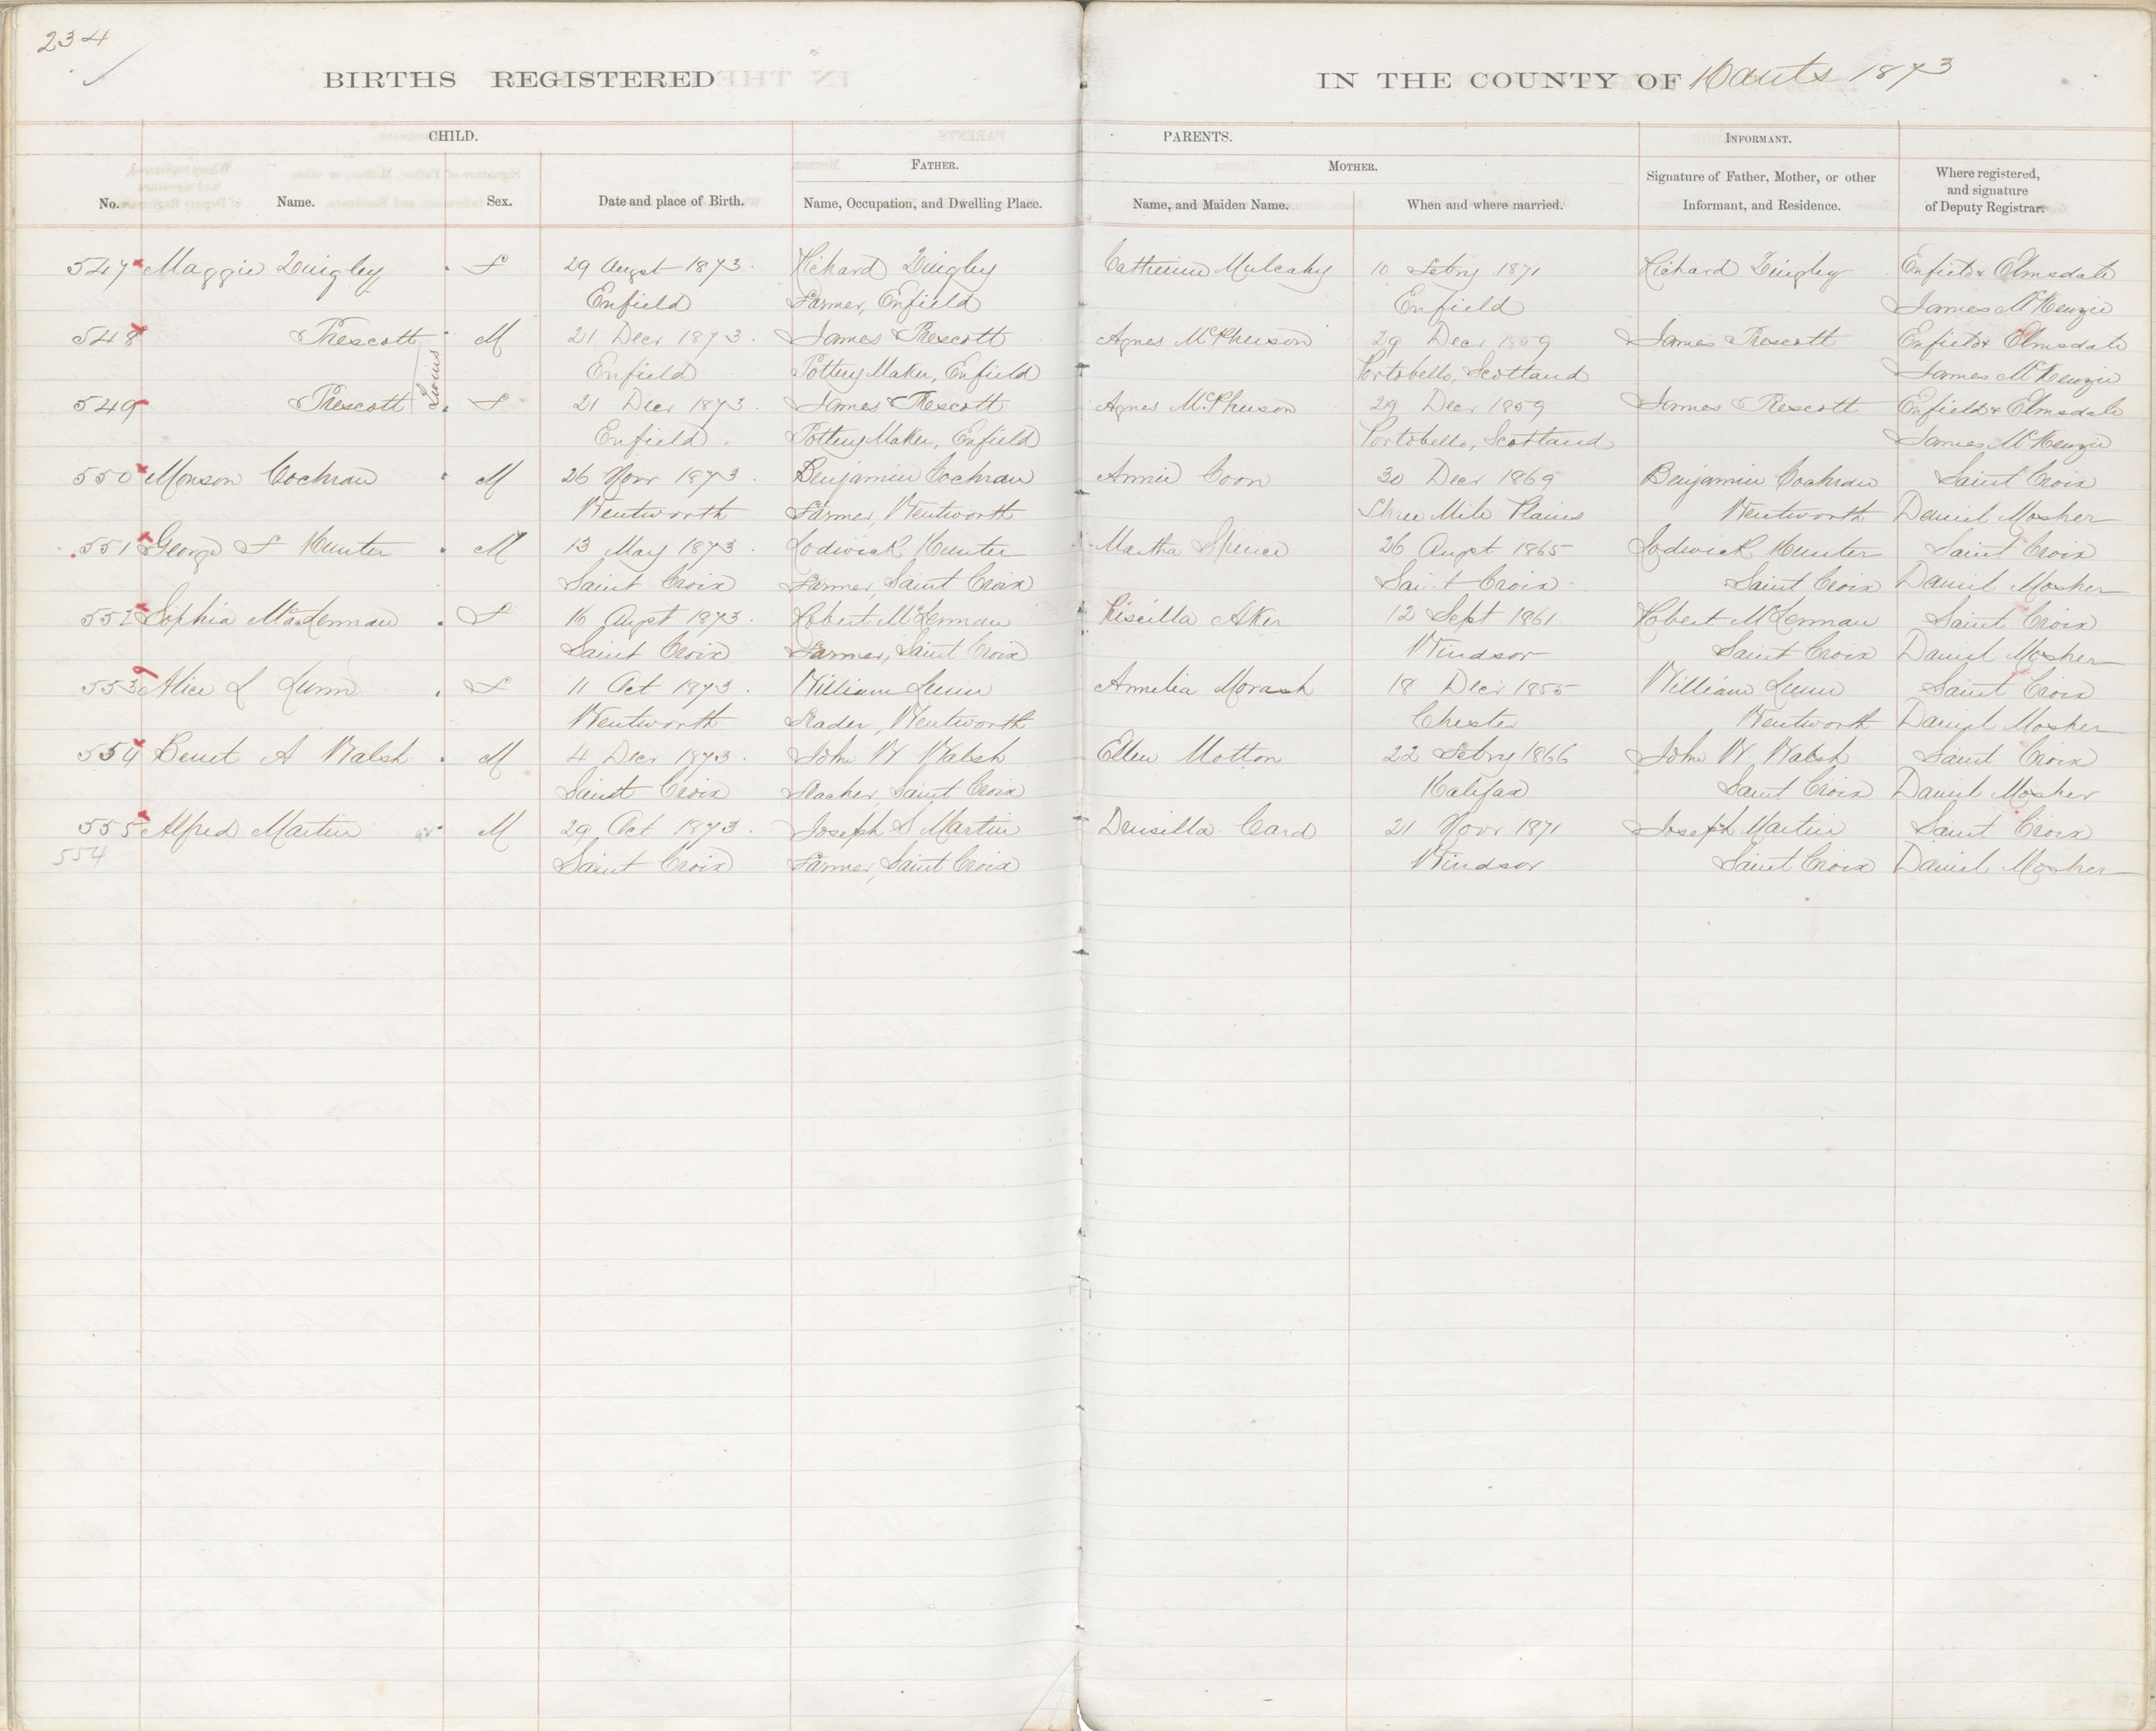 234
BIRTHS REGISTERED IN THE COUNTY OF Hants 1873
CHILD. PARENTS. INFORMANT.
FATHER. MOTHER.
No. Name. Sex. Date and place of Birth. Name, Occupation, and Dwelling Place. Name, and Maiden Name. When and where married. Signature of Father, Mother, or other Informant, and Residence. Where registered, and signature of Deputy Registrar.
547 Maggie Quigley F 29 Augst 1873. Richard Quigley Catherine Mulcahy 10 Febry 1871 Richard Quigley Enfield & Elmsdale
Enfield Farmer, Enfield Enfield James McKenzie
548 Prescott M 21 Decr 1873. James Prescott Agnes McPherson 29 Decr 1859 James Prescott Enfield & Elmsdale
Twins
Enfield Pottery Maker, Enfield Portobello, Scotland James McKenzie
549 Prescott F 21 Decr 1873. James Prescott Agnes McPherson 29 Decr 1859 James Prescott Enfield & Elmsdale
Enfield. Pottery Maker, Enfield Portobello, Scotland James McKenzie
550 Monson Cochran M 26 Novr 1873. Benjamin Cochran Annie Coon 30 Decr 1869 Benjamin Cochran Saint Croix
Wentworth Farmer, Wentworth Three Mile Plains Wentworth Daniel Mosher
551 George F Hunter M 13 May 1873. Lodwick Hunter Martha Spence 26 Augst 1865 Lodwick Hunter Saint Croix
Saint Croix Farmer, Saint Croix Saint Croix Saint Croix Daniel Mosher
552 Sophia McLennan F 16 Augst 1873. Robert McLennan Priscilla Aker 12 Sept 1861 Robert McLennan Saint Croix
Saint Croix Farmer, Saint Croix Windsor Saint Croix Daniel Mosher
553 Alice L Lunn F 11 Oct 1873. William Lunn Amelia Morash 18 Decr 1855 William Lunn Saint Croix
Wentworth Trader, Wentworth Chester Wentworth Daniel Mosher
554 Benet A Walsh M 4 Decr 1873. John W Walsh Ellen Motton 22 Febry 1866 John W Walsh Saint Croix
Saint Croix Teacher, Saint Croix Halifax Saint Croix Daniel Mosher
555 Alfred Martin M 29 Oct 1873. Joseph S Martin Drusilla Card 21 Novr 1871 Joseph Martin Saint Croix
554 Saint Croix Farmer, Saint Croix Windsor Saint Croix Daniel Mosher